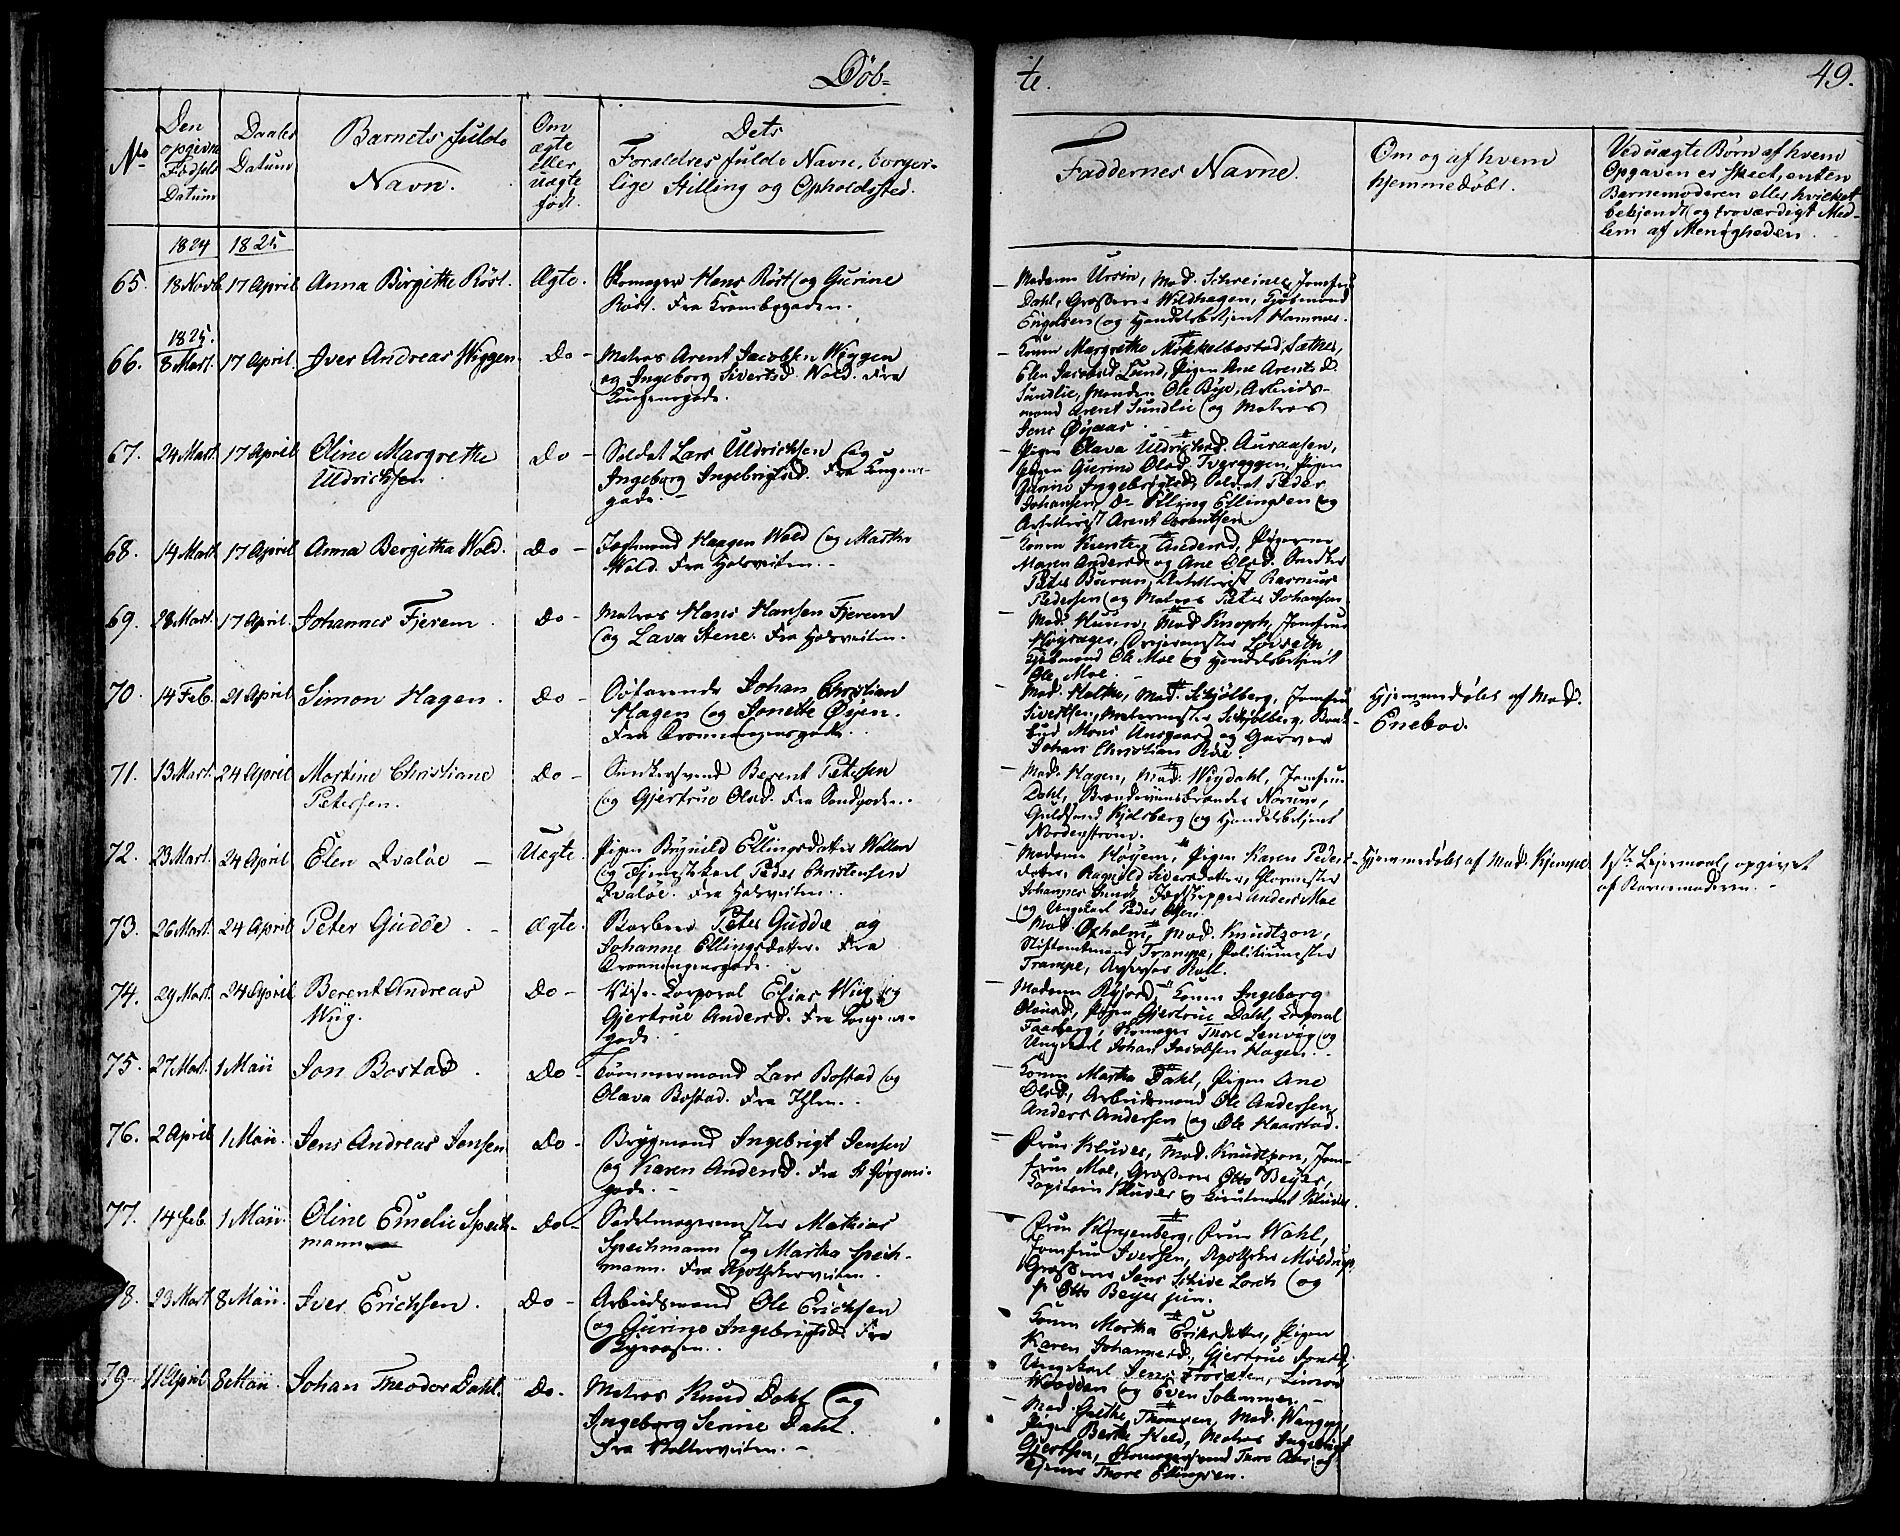 Døb=
te.
49.
No
Den opgivne Fødsels Datum
Daabs Datum
Barnets fulde Navn.
Om ægte eller uægte født.
Dets Forældres fulde Navne, borgerlige Stilling og Opholdssted.
Faddernes Navne.
Om og af hvem hjemmedøbt.
Ved uægte Børn af hvem Opgaven er skeet, enten Barnemoderen eller hvilket bekjendt og troværdigt Medlem af Menigheden
1824
1825
65. 18 Novb 17 April Anna Birgithe Röst. Ægte. Skomager Hans Röst og Gurine
Röst. Fra Krambogaden.
Madame Ursin, Mad. Schreiner, Jomfru
Dahl, Grosserer Wildhagen, Kjøbmand
Engelsen og Handelsbetjent Hammer.
1825.
66. 8 Mart. 17 April. Iver Andreas Wiggen. Do - Matros Arent Jacobsen Wiggen
og Ingeborg Sivertsd. Wold. Fra
Kongensgade.
Konen Margrethe Mökkelbostad, Sæther,
Elen Jacobsd Lund, Pigen Ane Arentsd.
Sundlie, Manden Ole Bye, Arbeids-
mand Arent Sundlie og Matros
Jens Øyaas
67. 24 Mart. 17 April Oline Margrethe
Uldrichsen
Do - Soldat Lars Uldrichsen og
Ingeborg Ingebrigtsd. Fra Kongens-
gade. -
Pigen Olava Uldrichsd. Auraasen,
Pigen Gurine Olsd.
Gurine Ingebrigtsd. Soldat Peder
Johansen, Do Elling Ellingsen og
Artillerist Arent Arentsen
68. 14 Mart 17 April Anna Bergitha Wold. Do - Jægtmand Haagen Wold og Martha
Wold. Fra Holsveiten. -
Konen Kirsten Andersd, Pigerne
Maren Andersd og Ane Olsd. Snedker
Peter Buran, Artillerist Rasmus
Pedersen og Matros Peter Johansen
69. 28 Mart. 17 April. Johannes Fjerem. Do - Matros Hans Hansen Fjerem
og Lava Stene. Fra Holsveiten.
Mad. Huun, Mad Knoph, Jomfru
Løvseth
Kjøbmand Ole Moe og Handelsbetjent
Ole Moe -
70. 14 Feb. 21 April Simon Hagen. Do - Søfarende Johan Christian
Hagen og Jonette Øyen.
Fra Dronningensgade.
Mad. Holthe, Mad. Schjølberg, Jomfru
Sivertsen, Schjølberg,
Mons Aunegaard og Garver
Johan Christian Roe.
Hjemmedøbt af Mad.
Eneboe.
71. 13 Mart. 24 April Martine Christiane
Petersen.
Do - Snedkersvend Berent Petersen
og Gjertrue Olsd. Fra Sandgaden.
Mad. Hagen, Mad. Wigdahl, Jomfru
Dahl, Brændeviinsbrænder Norum,
Guldsmed Kjelsberg og Handelsbetjent
Nordenstrøm.
72. 23 Mart. 24 April Elen Dvaløe - Uægte. Pigen Brynild Ellingsdatter Wollen
og Tjenestekarl Peder Christensen
Dvaløe. Fra Holsveiten.
Madame Høyem, Pigen Karen Peders-
datter, Ragnild Siversdatter, Glarmester
Johannes Lund, Jægtskipper Anders Moe
og Ungkarl Peder Olsen.
Hjemmedøbt af Mad. Kjempe
1ste Leiermaal, opgivet
af Barnemoderen. -
73. 26 Mart. 24 April Peter Guddøe. - Ægte. Barbeer Peter Guddøe og
Johanne Ellingsdatter. Fra
Dronningensgade.
Mad. Oxholm, Mad. Knudtzon,
Stiftamtmand Trampe, Politiemester
Trampe, Assessor Roll.
74. 29 Mart. 24 April Berent Andreas
Wiig.
Do - Vise-Corporal Elias Wiig og
Gjertrue Andersd. Fra Kongens-
gade.
Madame Ryjord, Konen Ingeborg
Olausd, Pigen Gjertrue Dahl, Corporal
Faaberg, Skomager Thore Lenvig og
Ungkarl Johan Jacobsen Hagen.
75. 27 Mart. 1 Maii Jon Bostad. Do - Tømmermand Lars Bostad og
Olava Bostad. Fra Ihlen.
Konen Martha Dahl, Pigen Ane
Olsd, Arbeidsmand Ole Andersen,
Anders Andersen og Ole Haarstad.
76. 2 April 1 Maii. Jens Andreas Jensen Do - Brygmand Ingebrigt Jensen
og Karen Andersd. Fra St Jørgens-
gade. -
Frue Klüver, Mad. Knudtzon, Jom-
fru Moe, Grosserer Otto Beyer,
Kapitain Klüver og Lieutenant Klüver.
77. 14 Feb. 1 Maii. Oline Emelie Speck-
mann
Do - Sadelmagermester Mathias
Speckmann og Martha Speck-
mann. Fra Apothekerveiten.
Frue Klingenberg, Frue Wahl,
Jomfru Iversen, Apotheker Moldrup,
Grosserer Jens Schive Lorch og
Hr Otto Beyer jun.
78. 23 Mart. 8 Maii. Iver Erichsen. Do - Arbeidsmand Ole Erichsen
og Gurine Ingebrigtsd. Fra
Konen Martha Eriksdatter, Pigen
Karen Johannesd, Gjertrue Jonsd,
Ungkarl Jens Frosten, Simon
Wodden og Even Solemmen. -
79 11 April 8 Maii Johan Theodor Dahl. Do. Matros Knud Dahl og
Ingeborg Serine Dahl.
Fra Wolterveiten. -
Mad. Grethe Thomesen, Mad. Wangberg,
Pigen Berthe Held, Matros Ingebrigt
Gjertsen, Skomagersvend Thore
Thore Ellingsen.